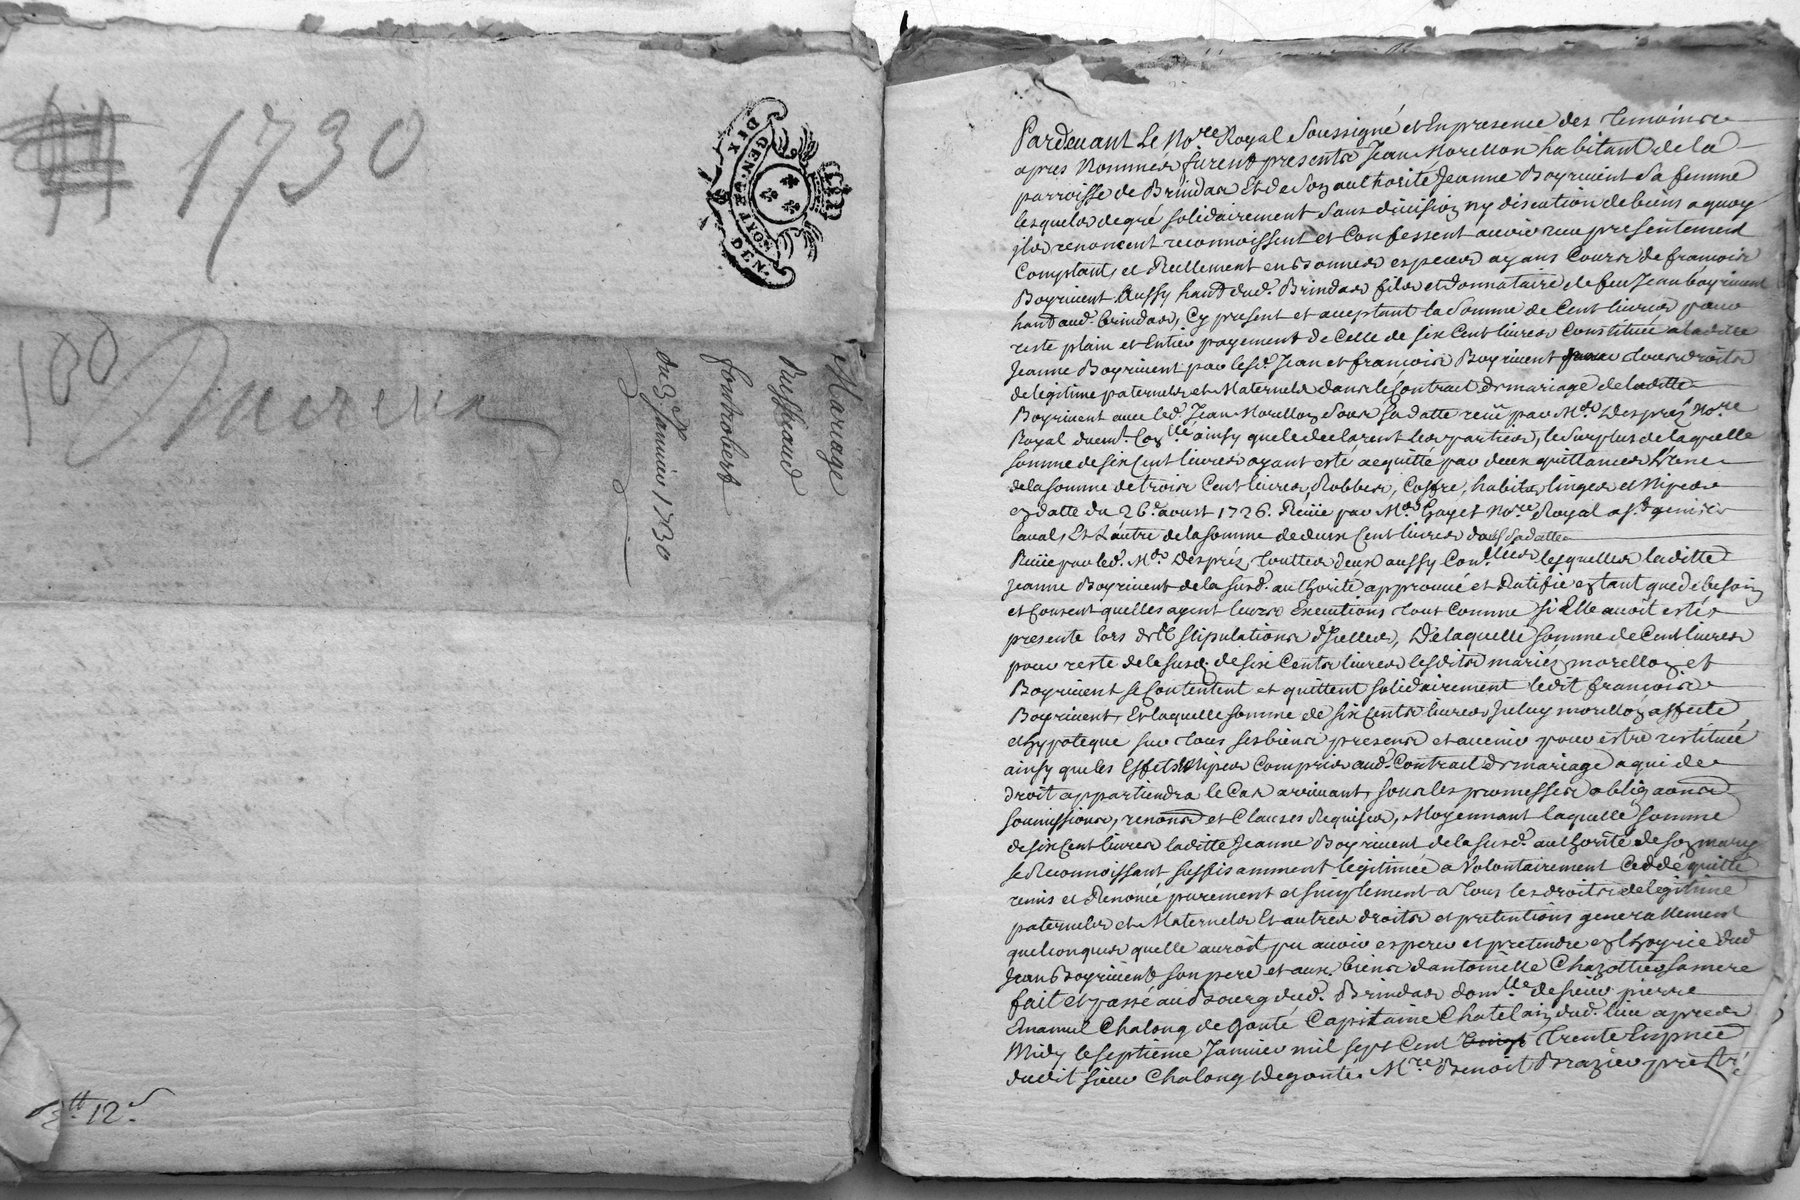 1730
DIX
GEN.TEA.NOTTES
DEN.
Mariage
Ruffieaud
fontrobert
du 3e. Janvier 1730
12
Pardevant Le No.re Royal Soussigné et En presence des temoins
apres Nommés furent presents Jean Morellon habitant de la
parroisse de Brindas Et de Son authorité Jeanne Boyrivent Sa femme
lesquels de gré solidairement Sans division ny discution de biens a quoy
ils renoncent reconnoissent et Confessent avoir reçu presentement
Comptant et Reellement en bonnes especes ayans Cours de francois
Boyrivent Aussy hant dud. Brindas fils et donnataire de feu Jean boyrivent
hant aud. brindas, Cy present et acceptant la Somme de Cent livres pour
reste plain et Entier payement de Celle de six Cent livres Constituée a laditte
Jeanne Boyrivent par lesd. Jean et francois Boyrivent tous droits
de legitime paternels et Maternels dans le Contract de mariage de laditte
Boyrivent avec led. Jean Morellon Sous Sa datte reçu par Me. Desprez No.re
Royal ainsy que le declarent les parties, le Surplus de laquelle
somme de six Cent livres ayant esté acquitté par deux quittances L'une
de la somme de trois Cent livres, Robbes, Coffre, habits, linges et Nipes
en datte du 26e. aoust 1726. Reçüe par Me. Gayet No.re Royal a St. genis
laval, Et L'autre de la somme de deux Cent livres sous Sa datte
Reçüe par led. Me. Desprez, touttes deux aussy Con.llées lesquelles laditte
Jeanne Boyrivent de la Susd. authorité approuve et Ratifie en tant que de besoin
et Consent quelles ayent leurs Executions tout Comme Si Elle avoit esté
presente lors des stipulations d'Icelles, De laquelle somme de Cent livres
pour reste de la susd. de six Cents livres lesdits mariez morellon et
Boyrivent se Contentent et quittent solidairement ledit francois
Boyrivent, Et laquelle somme de six Cents livres Iceluy morellon affecte
et hypoteque sur tous ses biens presens et avenir pour estre restituée
ainsy que les Effets Nipes Compris aud. Contract de mariage a qui de
droit appartiendra le Cas arrivant, sous les promesses obligaons
soumissions, renons et Clauses Requises, Moyennant laquelle somme
de six Cent livres laditte Jeanne Boyrivent de la susd. authorité de son mary
se Reconnoissant suffisamment legitimée a Volontairement Ceddé quitté
remis et Renoncé purement et simplement a tous les droits de legitime
paternels et Maternels Et autres droits et pretentions generallement
quelconques quelle auroit pu avoir esperer et pretendre en L'hoyrie dud.
Jean Boyrivent son pere et aux biens d'antoinette Chazottier sa mere
fait et passé au Bourg dud. Brindas dom.lle de sieur pierre
Emanuel Chalong de gonté Capitaine Chatelain dud. lieu apres
Midy le septieme Janvier mil sept Cent vingt trente En pnce
dudit sieur Chalong de gonté. M.re Benoit Brazier prestre